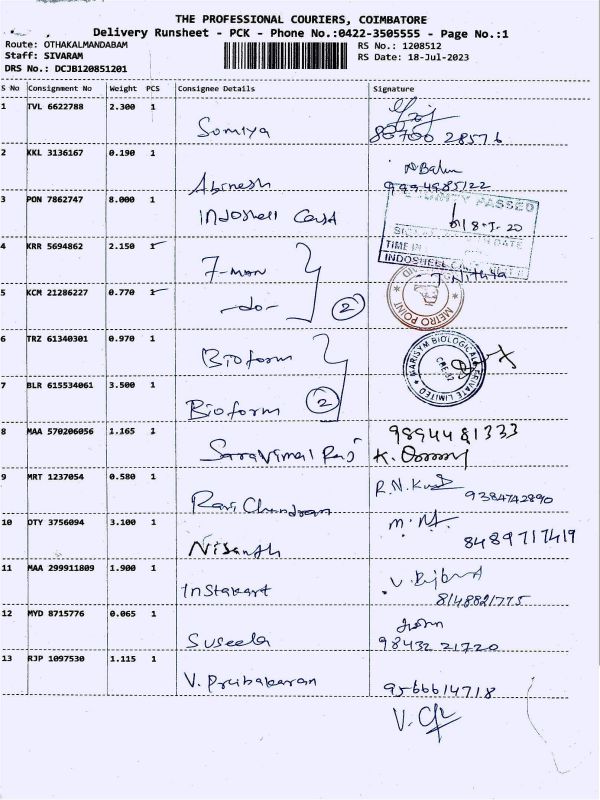 THE PROFESSIONAL COURIERS, COIMBATORE
Delivery Runsheet - PCK - Phone No.:0422-3505555 - Page No.:1
Route: OTHAKALMANDABAM RS No.: 1208512
Staff: SIVARAM RS Date: 18-Jul-2023
DRS No.: DCJB120851201
S No Consignment No Weight PCS Consignee Details Signature
1 TVL 6622788 2.300 1 Somiya
80700 28576
2 KKL 3136167 0.190 1 Abinesh
9994985122
3 PON 7862747 8.000 1 Indoshell Cast
SECURITY PASSED
TIME IN
4 KRR 5694862 2.150 1 7-man
J Nithya
5 KCM 21286227 0.770 1 -do- 2
METRO POINT
6 TRZ 61340301 0.970 1 Bioform
KARISYM BIOLOGICALS PRIVATE LIMITED
CBE-32
7 BLR 615534061 3.500 1 Bioform 2
8 MAA 570206056 1.165 1 Saravimal Raj
9894481333
9 MRT 1237054 0.580 1 Ravi Chandran
9384742890
10 OTY 3756094 3.100 1 Nisanth
8489717419
11 MAA 299911809 1.900 1 Instakart
8148821775
12 MYD 8715776 0.065 1 Suseela
98432 21720
13 RJP 1097530 1.115 1 V. Prubakaran
9566614718